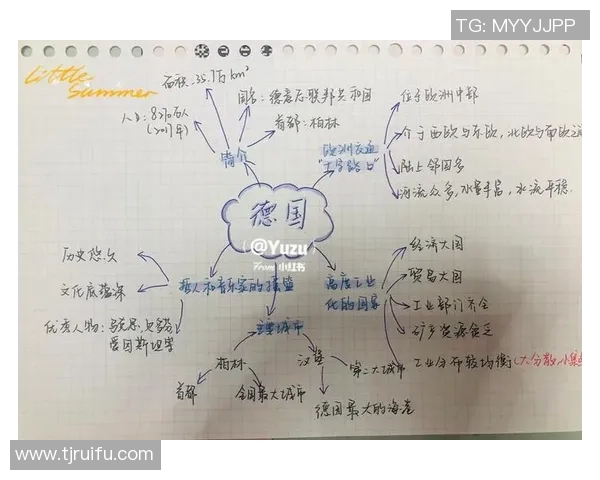 TG: MYYJJPP
Little Summer
面积:35.7万km²
人口:8270万人
(2017年)
国名:德意志联邦共和国
首都:柏林
简介
欧洲交通
"十字路口"
位于欧洲中部
介于西欧与东欧,北欧与南欧之间
陆上邻国多
河流众多,水量丰富,水流平稳.
德国
@Yuzu
From 小红书
历史悠久
文化底蕴深
优秀人物:马克思,贝多芬
爱因斯坦等
哲人和音乐家的摇篮
高度工业
化的国家
经济大国
贸易大国
工业部门齐全
矿产资源贫乏
工业分布较均衡(大分散,小集
主要城市
柏林
首都
全国最大城市
汉堡
第二大城市
德国最大的海港
www.tjruifu.com